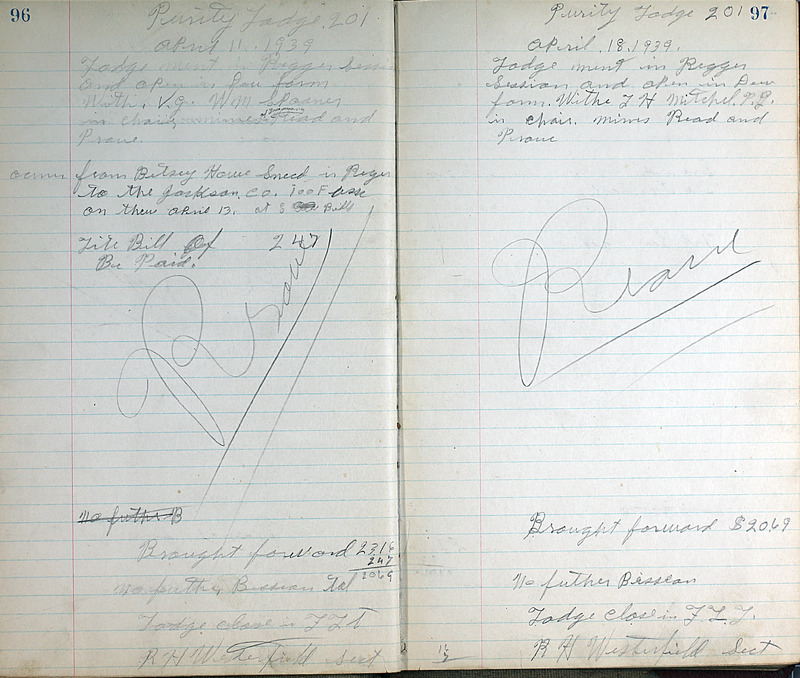 96
Purity Lodge, 201
April 11, 1939
Lodge ment in Regger Sessi
and open in Dew form
With. V.G. W.M. Spooner
in chair, Read and
Prove.
from Betsey House Sneed in Reger
to the Jackson. Co. IOOF asse
on them April 13. at 8 Bells
Lite Bill Of 2 47
Be Paid.
Read
No futher B
Brought forword 23.16
2 47
2069
No futher Bissean Tal
Lodge close in F L t
R H Westerfield Sect
97
Purity Lodge 201
April. 18, 1939.
Lodge ment in Regger
Session and open in Dew
form. Withe L H Mitchel. P.G.
in chair. mins Read and
Prove
Read
Brought forword $20.69
No futher Bissean
Lodge close in F. L. T.
R H Westerfield Sect